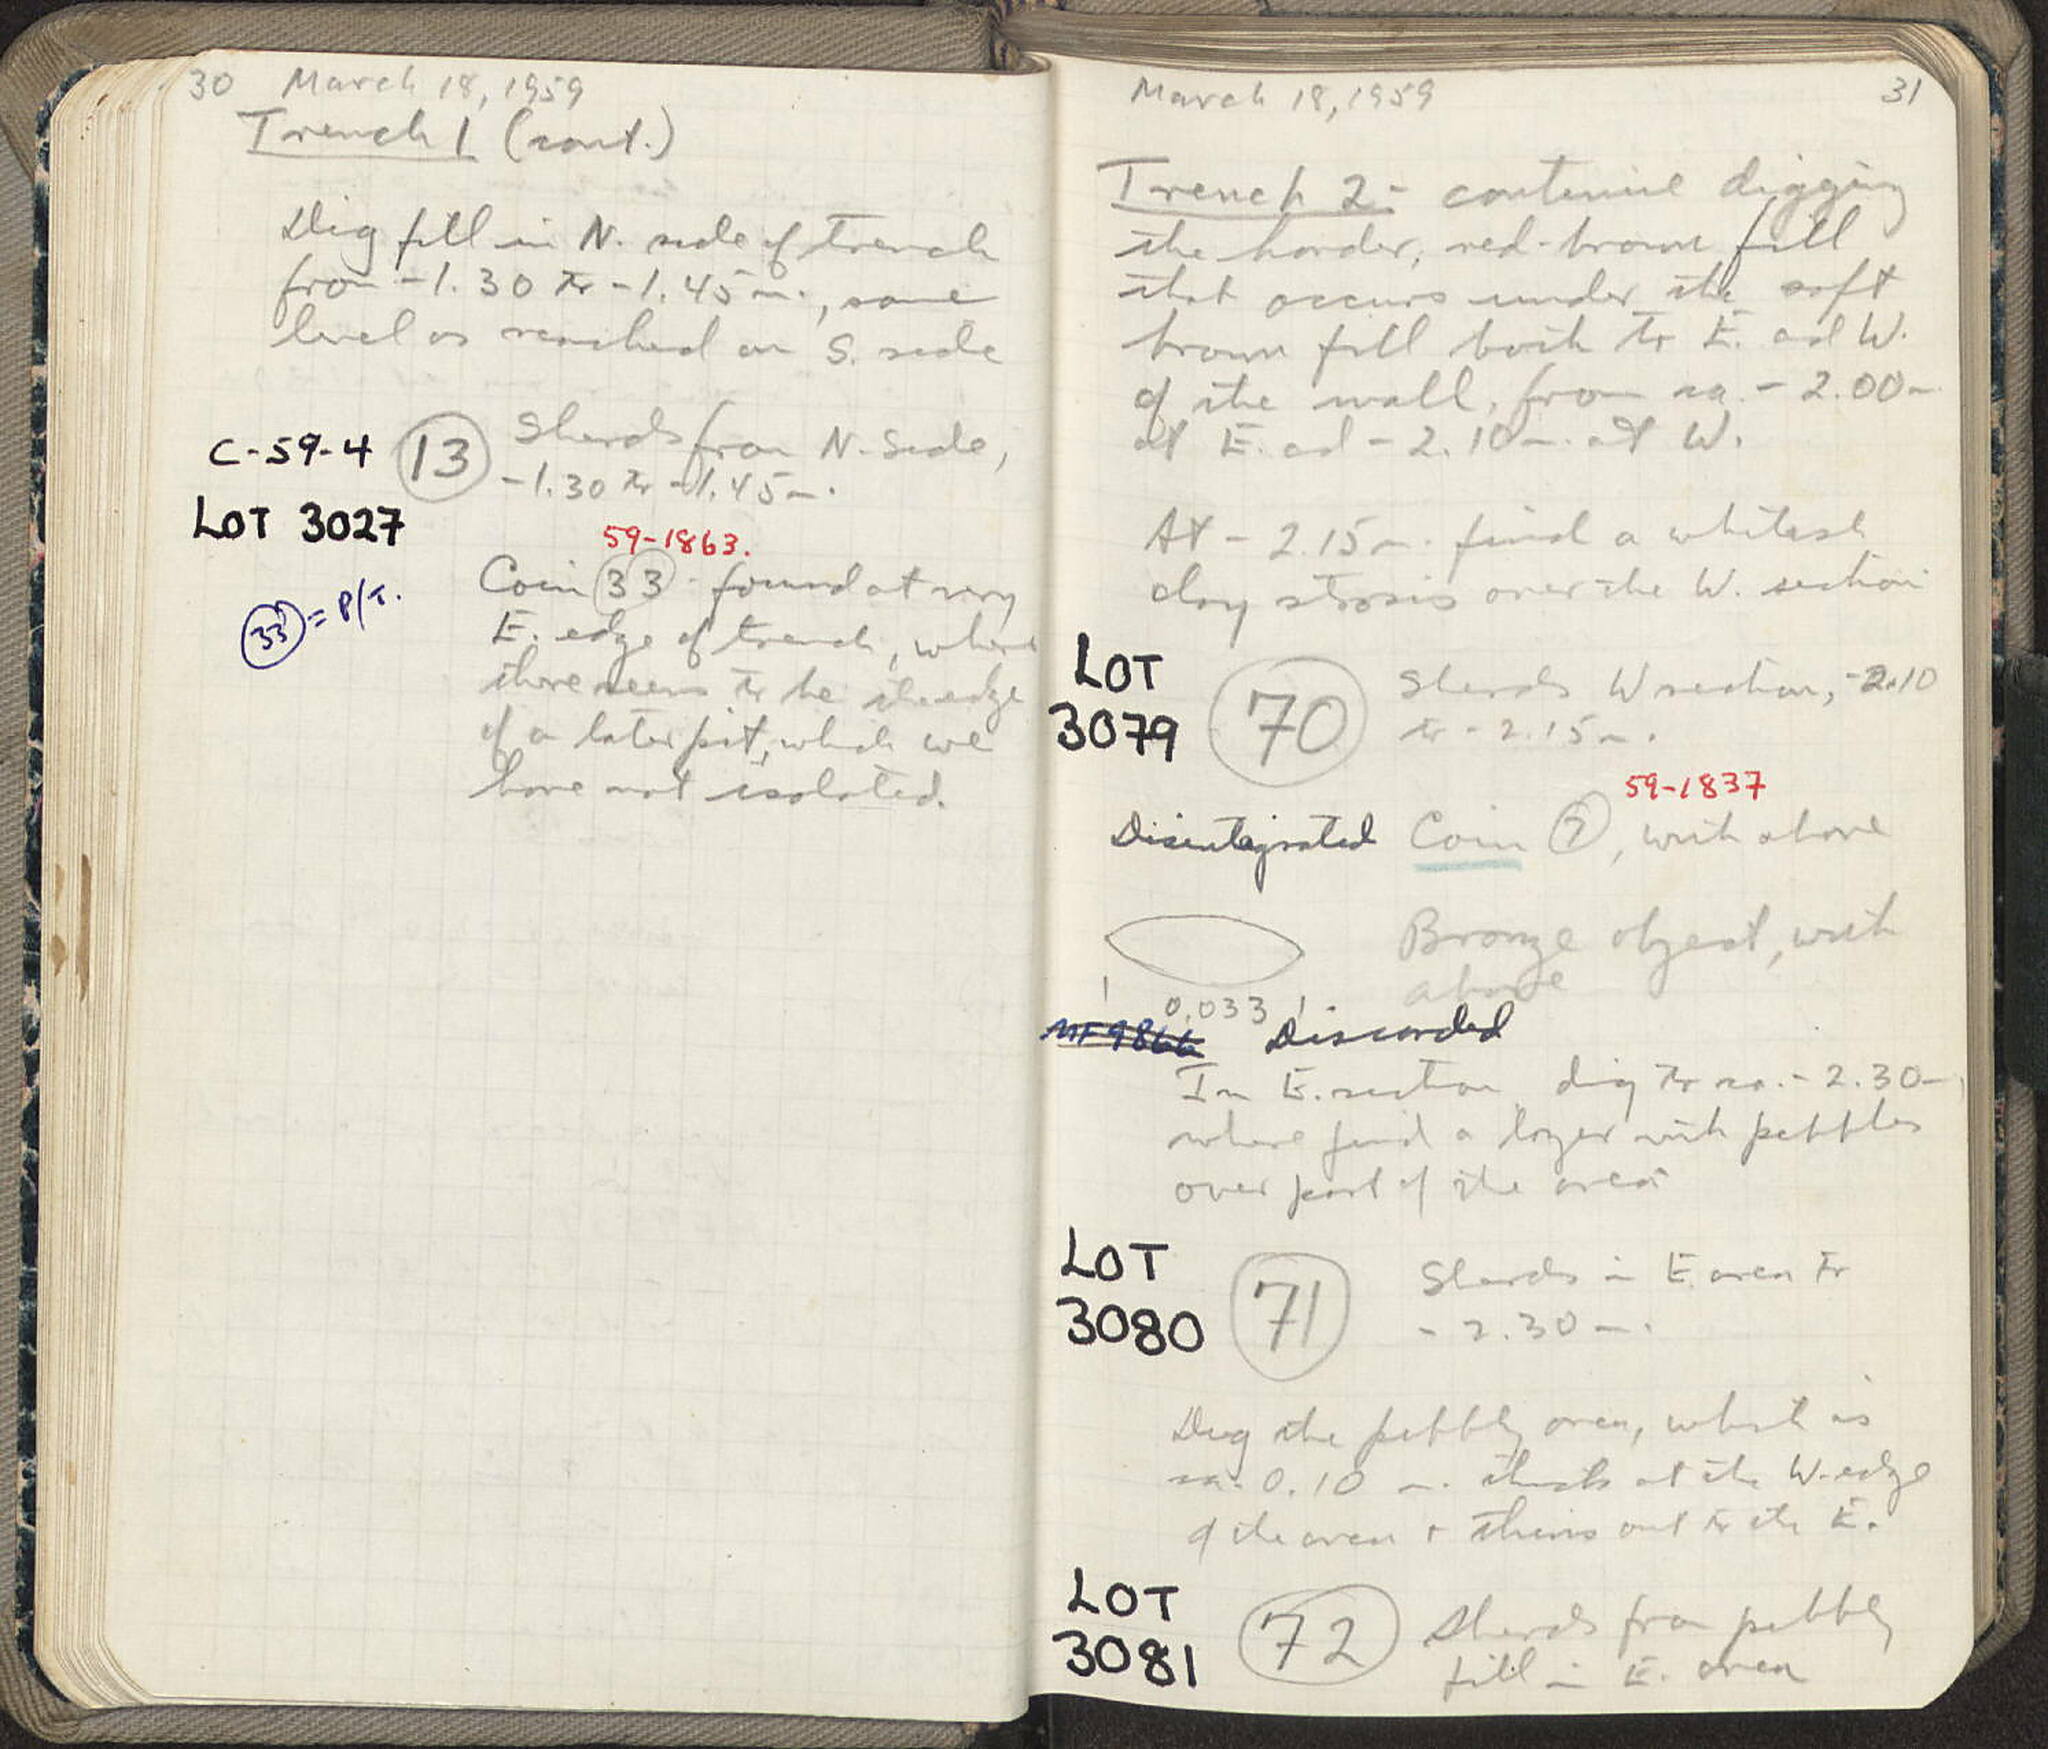 30 March 18, 1959
Trench 1 (cont.)
Dig fill in N. side of trench
from -1.30 to -1.45 m., same
level as reached on S. side
C-59-4 13 Sherds from N. Side,
-1.30 to -1.45 m.
LOT 3027
59-1863.
Coin 33 - found at very
33 = P/T.
E. edge of trench, where
there seems to be the edge
of a later pit, which we
have not isolated.
March 18, 1959 31
Trench 2 - continue digging
the harder, red-brown fill
that occurs under the soft
brown fill both to E. and W.
of the wall, from ca. - 2.00 m
at E. and - 2.10 m. at W.
At - 2.15 m. find a whitish
clay strosis over the W. section
LOT
3079 70 Sherds W section, -2.10
to - 2.15 m.
59-1837
Disintegrated Coin 7, with above
Bronze object, with
above
0.033
MF 9866 Discarded
In E. section dig to ca. - 2.30 m
where find a layer with pebbles
over part of the area
LOT
3080 71 Sherds in E. area to
- 2.30 m.
Dig the pebbly area, which is
ca. 0.10 m. thick at the W. edge
of the area + thins out to the E.
LOT
3081 72 Sherds from pebbly
fill in E. area